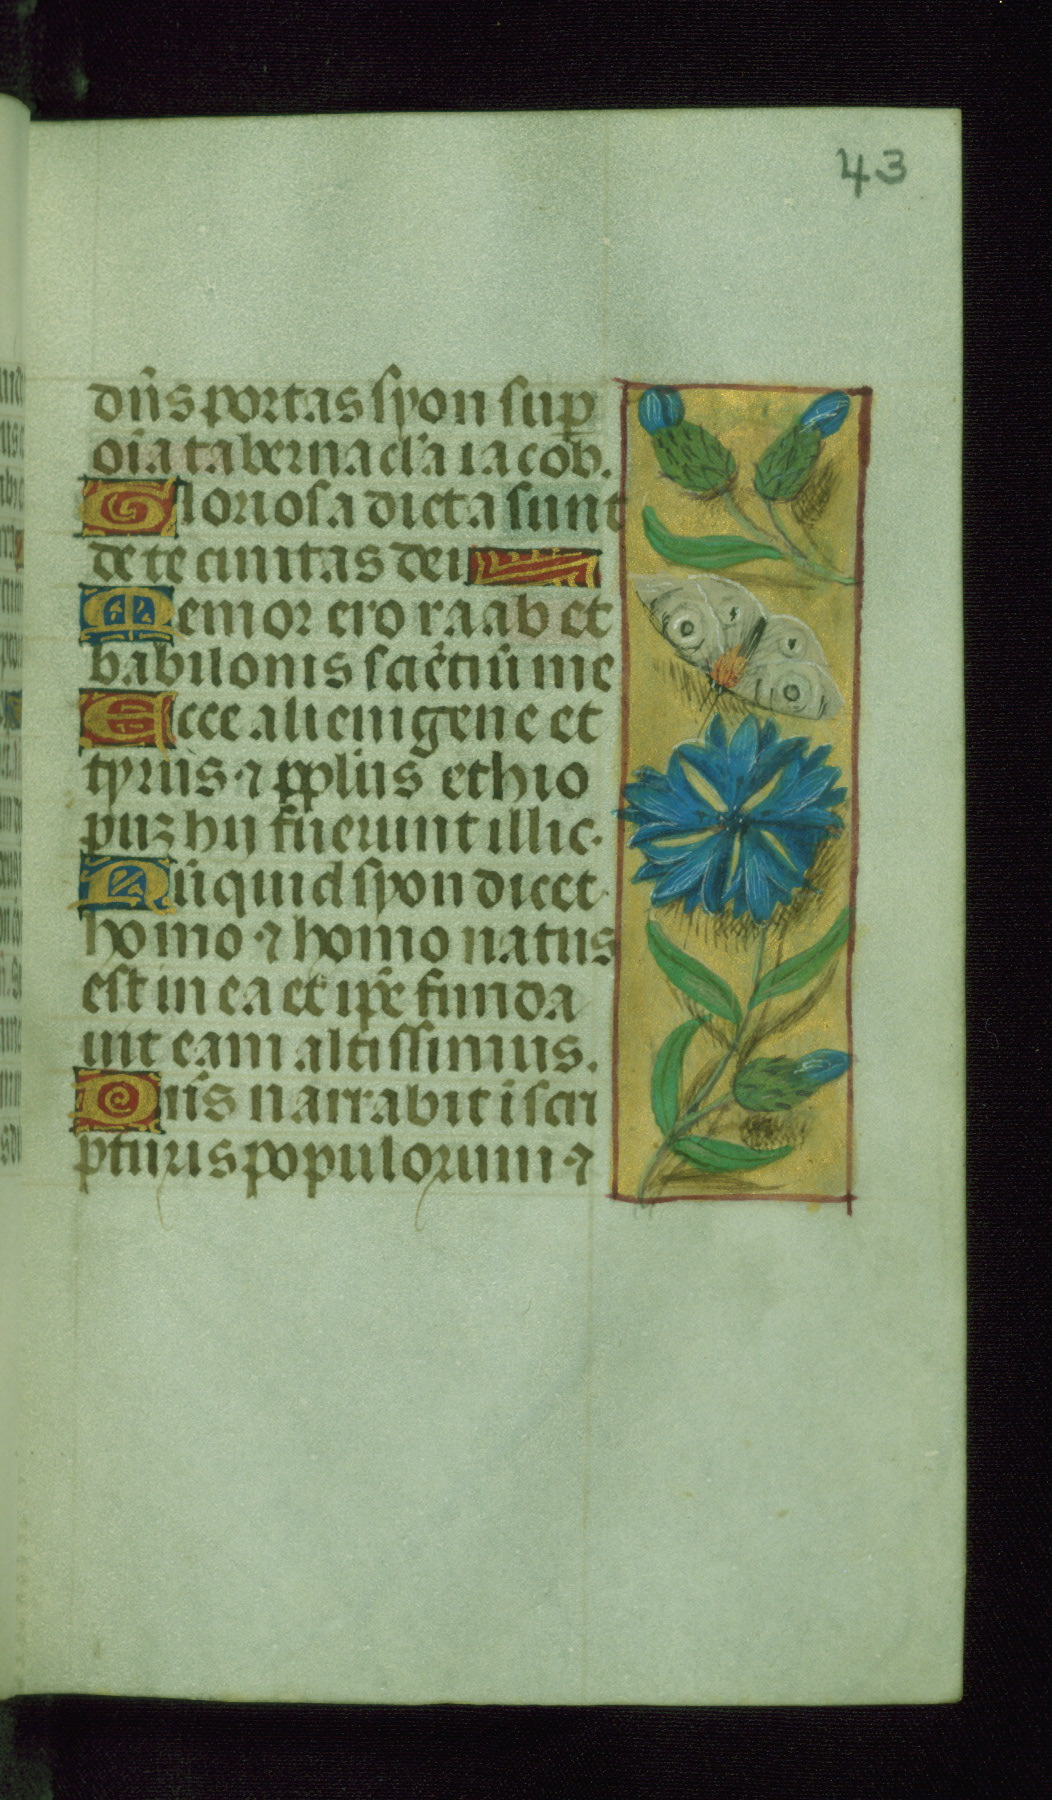 43
dn̄s portas syon sup̄
oīa tabernacl'a iacob.
Gloriosa dicta sunt
de te ciuitas dei
Memor ero raab et
babilonis sciētiū me
Ecce alienigene et
tyrus ⁊ ppl̄us ethio
puꝫ hij fuerunt illic.
Nūquid syon dicet
homo ⁊ homo natus
est in ea et ip̄e funda
uit eam altissimus.
Dn̄s narrabit ī scri
pturis populorum ⁊